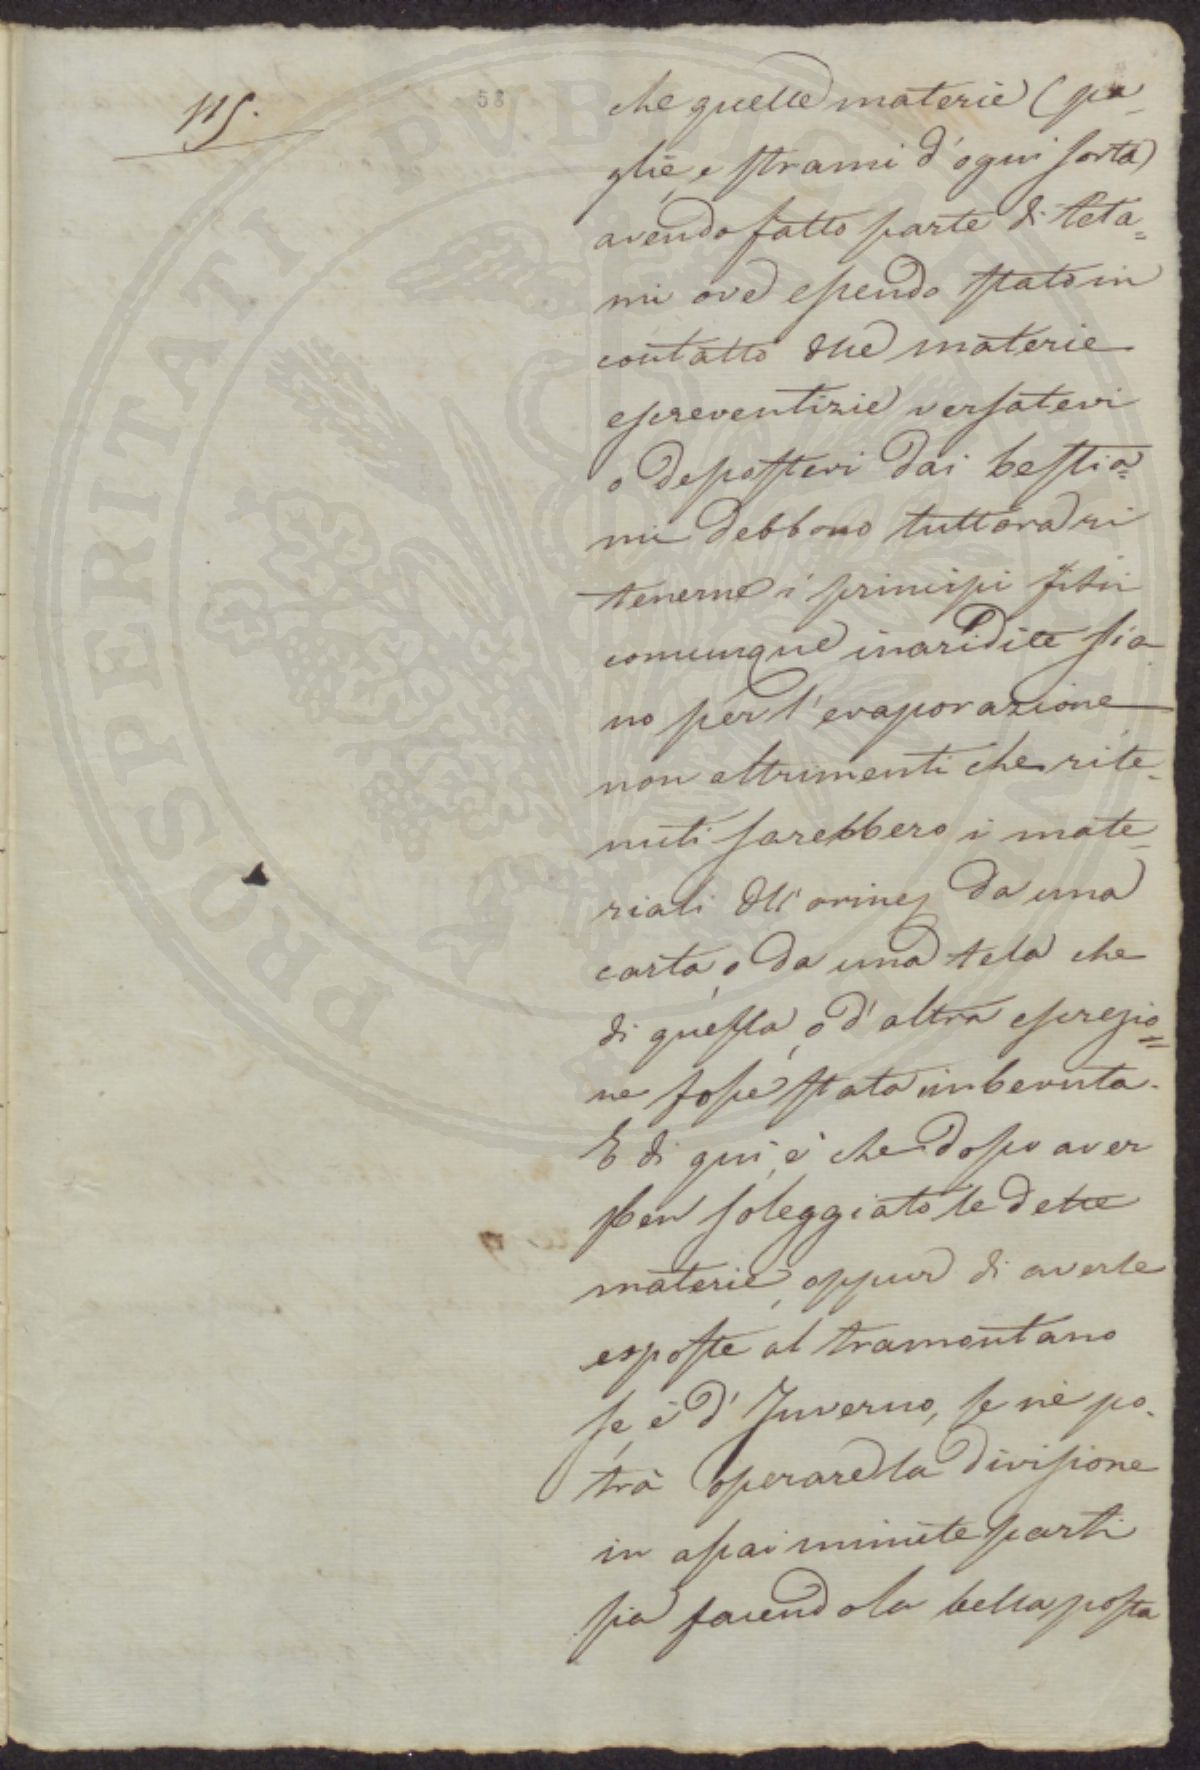 115.
58
che quelle materie (pa-
glie, e strami d'ogni sorta)
avendo fatto parte di leta=
mi ove essendo stato in
contatto dlle materie
escreventizie versatevi
o depostevi dai bestia=
mi debbono tuttora ri
tenerne i principi fissi
comunque inaridite sia
no per l'evaporazione
non altrimenti che rite-
nuti sarebbero i mate-
riali dll'orine, da una
carta, o da una tela che
di questa, o d'altra escrezio=
ne fosse stata imbevuta.
E di qui, è che dopo aver
ben soleggiato le dette
materie, oppur di averle
esposte al tramontano
se è d'Inverno, se nè po-
trà operare la divisione
in assai minute parti
sia facendola bella posta
PROSPERITATI PVBLICAE